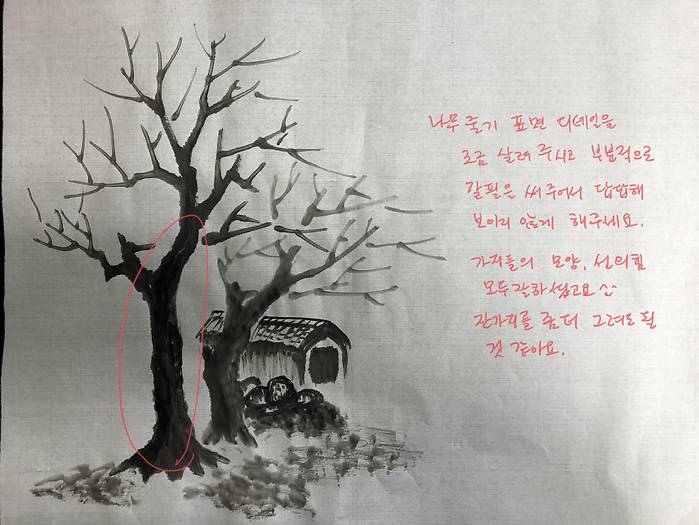 나무 줄기 표면 디테일을
조금 살려 주시고 부분적으로
갈필을 써 주어서 답답해
보이지 않게 해주세요.
가지들의 모양, 선의 힘
모두 잘 하셨고요
잔가지를 좀 더 그려도 될
것 같아요.